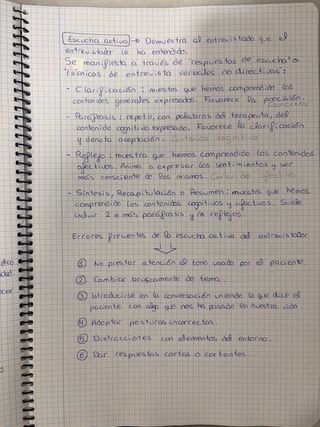 Escucha activa → Demuestra al entrevistado que el
entrevistador le ha entendido.
Se manifiesta a través de "respuestas de escucha" o
técnicas de entrevista verbales no directivas:
- Clarificación: muestra que hemos comprendido los
contenidos generales expresados. Favorece la precisión.
Concreta
- Paráfrasis: repetir, con palabras del terapeuta, del
contenido cognitivo expresado. Favorece la clarificación
y denota aceptación. Contenido cognitivo
- Reflejo: muestra que hemos comprendido los contenidos
afectivos. Anima a expresar los sentimientos y ser
más consciente de los mismos. Contenido afectivo
- Síntesis, Recapitulación o Resumen: muestra que hemos
comprendido los contenidos cognitivos y afectivos. Suele
incluir 2 o más paráfrasis y/o reflejos.
Errores frecuentes de la escucha activa del entrevistador
① No prestar atención al tono usado por el paciente.
② Cambiar bruscamente de tema.
③ Introducirse en la conversación uniendo lo que dice el
paciente con algo que nos ha pasado en nuestra vida.
④ Adoptar posturas incorrectas.
⑤ Distracciones con elementos del entorno.
⑥ Dar respuestas cortas o cortantes.
dico
dad
cer